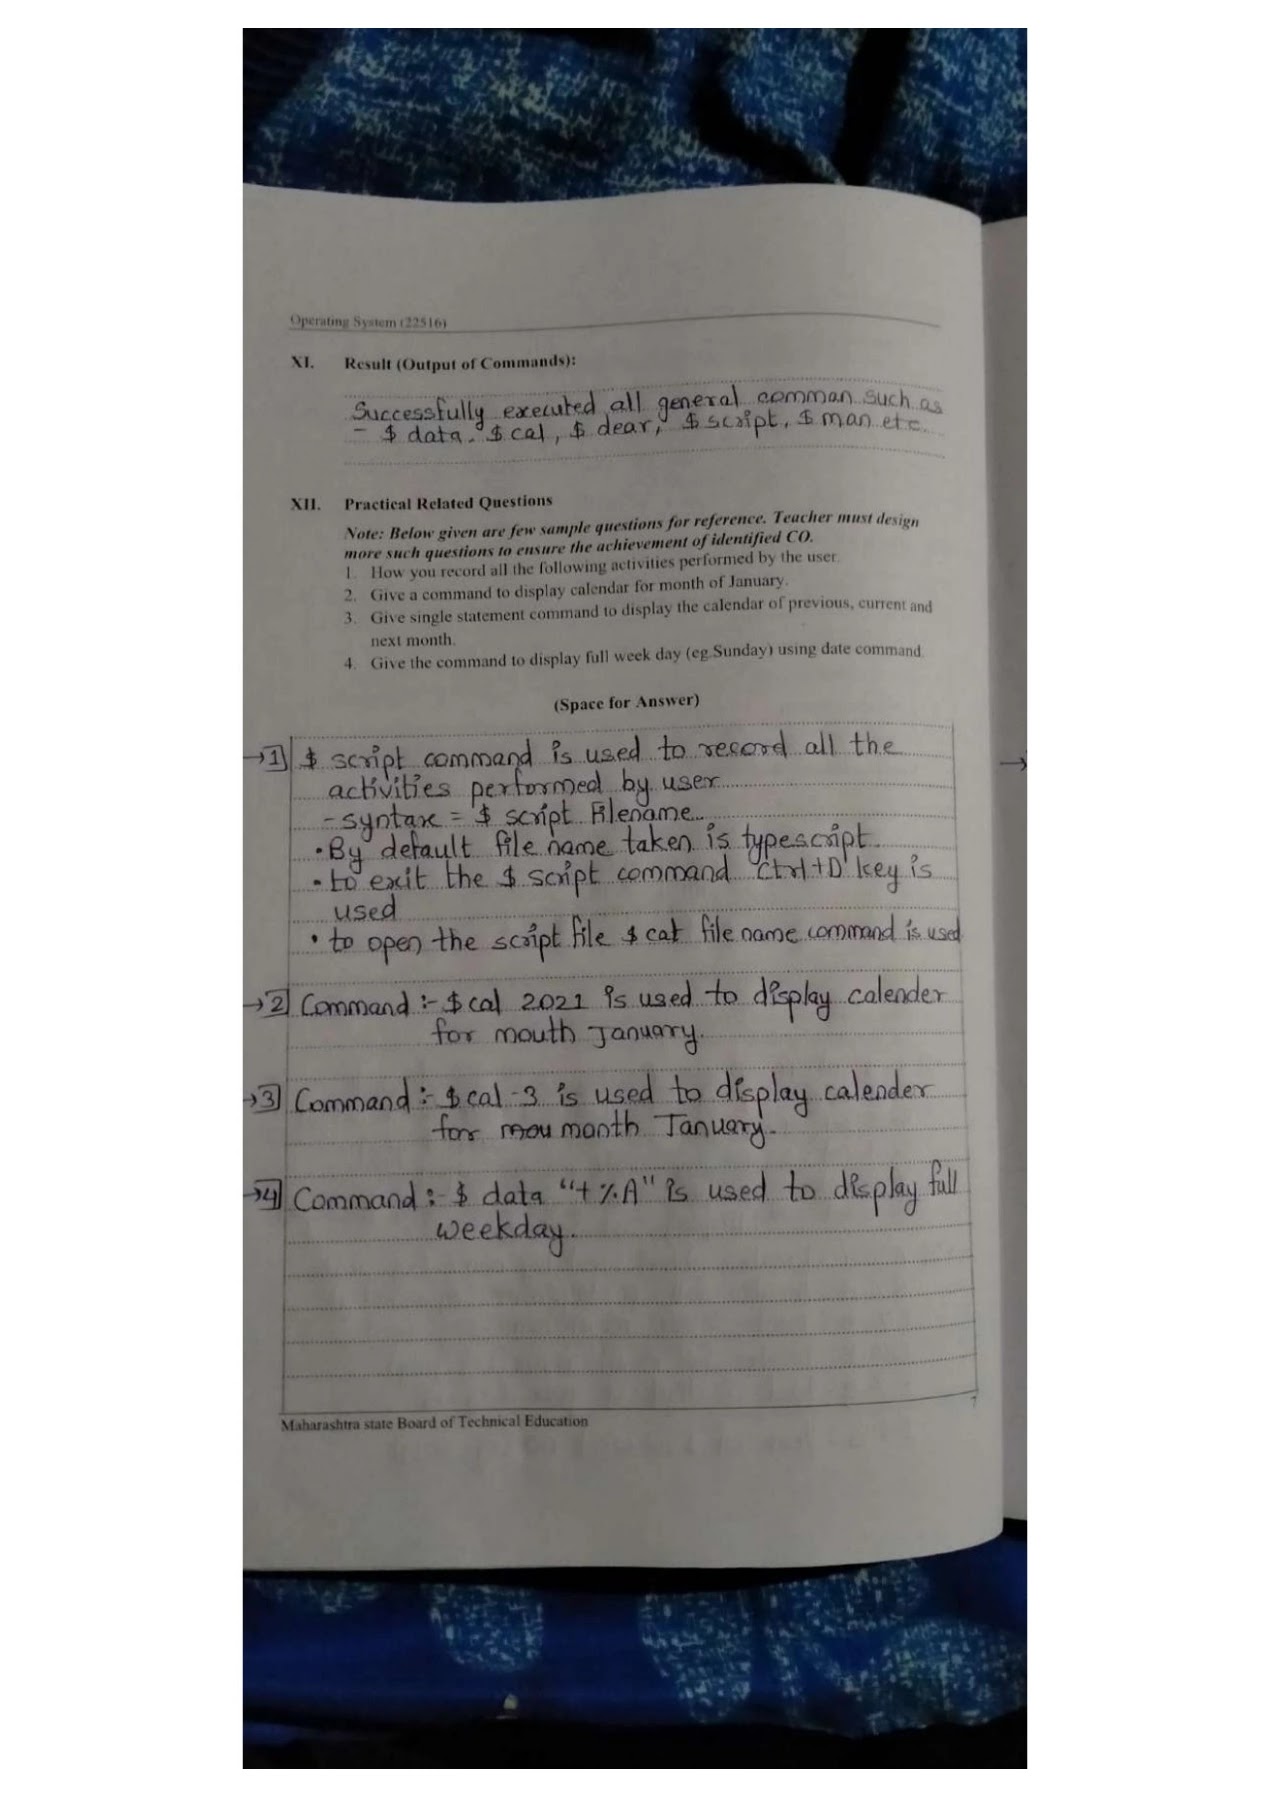 Operating System (22516)
XI. Result (Output of Commands):
Successfully executed all general comman such as
- $ data. $ cal, $ dear, $ script, $ man etc.
XII. Practical Related Questions
Note: Below given are few sample questions for reference. Teacher must design
more such questions to ensure the achievement of identified CO.
1. How you record all the following activities performed by the user.
2. Give a command to display calendar for month of January.
3. Give single statement command to display the calendar of previous, current and
next month.
4. Give the command to display full week day (eg.Sunday) using date command.
(Space for Answer)
→1] $ script command is used to record all the
activities performed by user
- syntax = $ script Filename.
• By default file name taken is typescript.
• to exit the $ script command Ctrl+D key is
used
• to open the script file $ cat file name command is used
→2] Command :- $ cal 2021 is used to display calender
for mouth January.
→3] Command :- $ cal -3 is used to display calender
for month January.
→4] Command :- $ data "+%A" is used to display full
weekday.
Maharashtra state Board of Technical Education
7
→